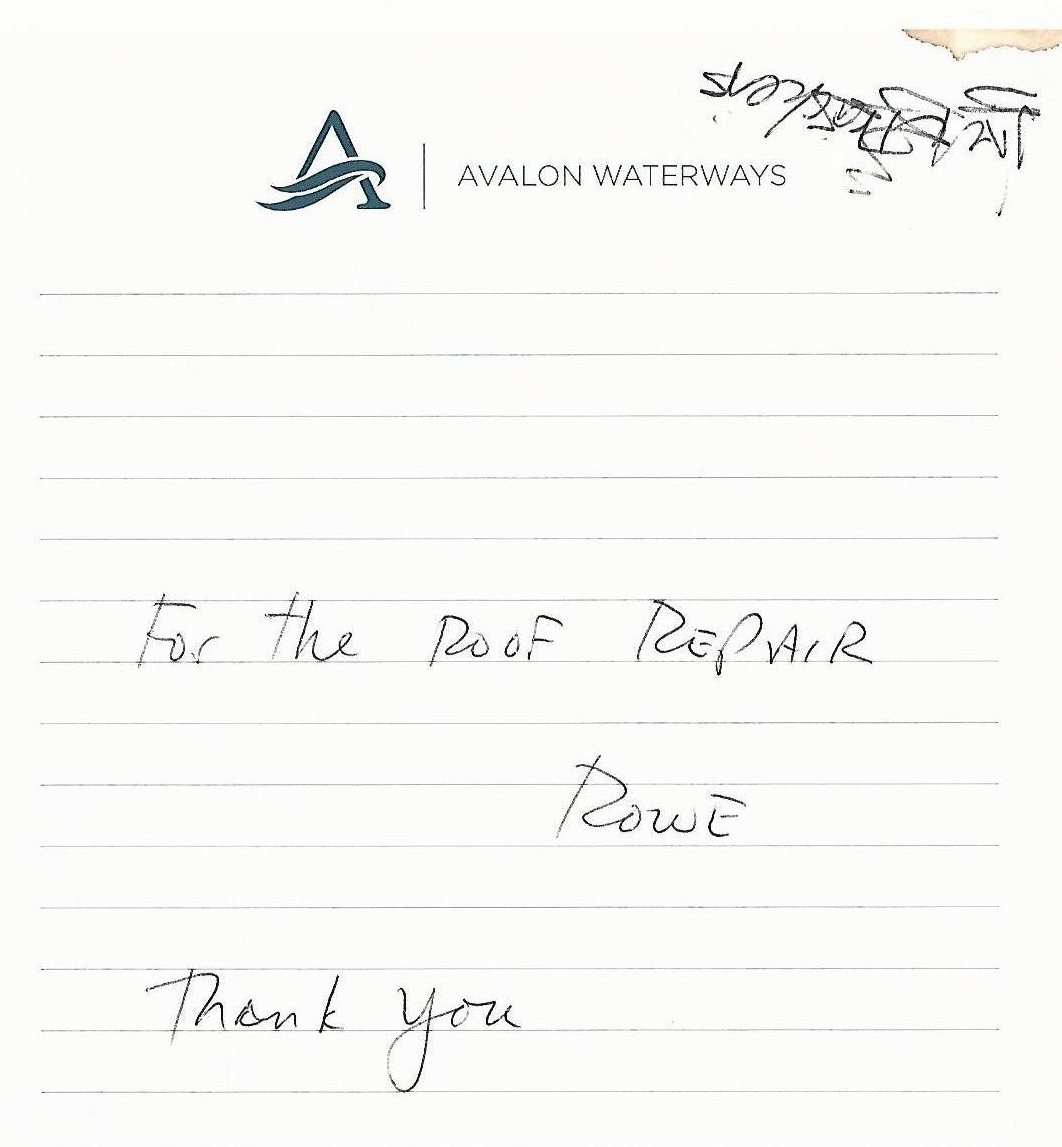 AVALON WATERWAYS
For the ROOF REPAIR
ROWE
Thank you